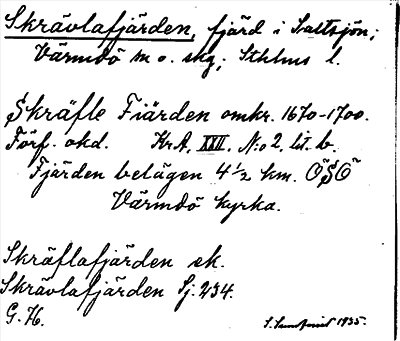 Skrävlafjärden, fjärd i Saltsjön;
Värmdö m o. skg; Sthlms l.
Skräfle Fiärden omkr. 1670-1700.
Förf. okd. Kr.A. XXII. N:o 2. lit. b.
Fjärden belägen 4 1/2 km. ÖSÖ
Värmdö kyrka.
Skräflafjärden ek.
Skrävlafjärden Sj. 234.
G. H.
1935.